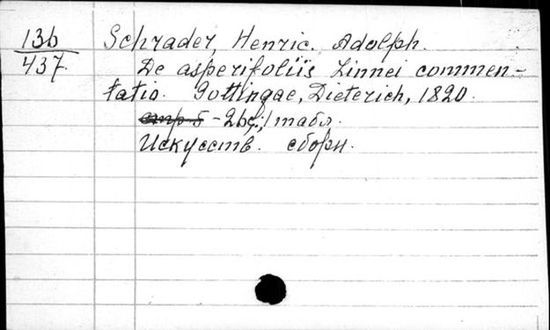 13b
437.
Schrader, Henric. Adolph.
De asperifoliis Linnei commen-
tatio. Gottingae, Dieterich, 1820.
стр 5 - 26 1 табл.
Искусств. сборн.